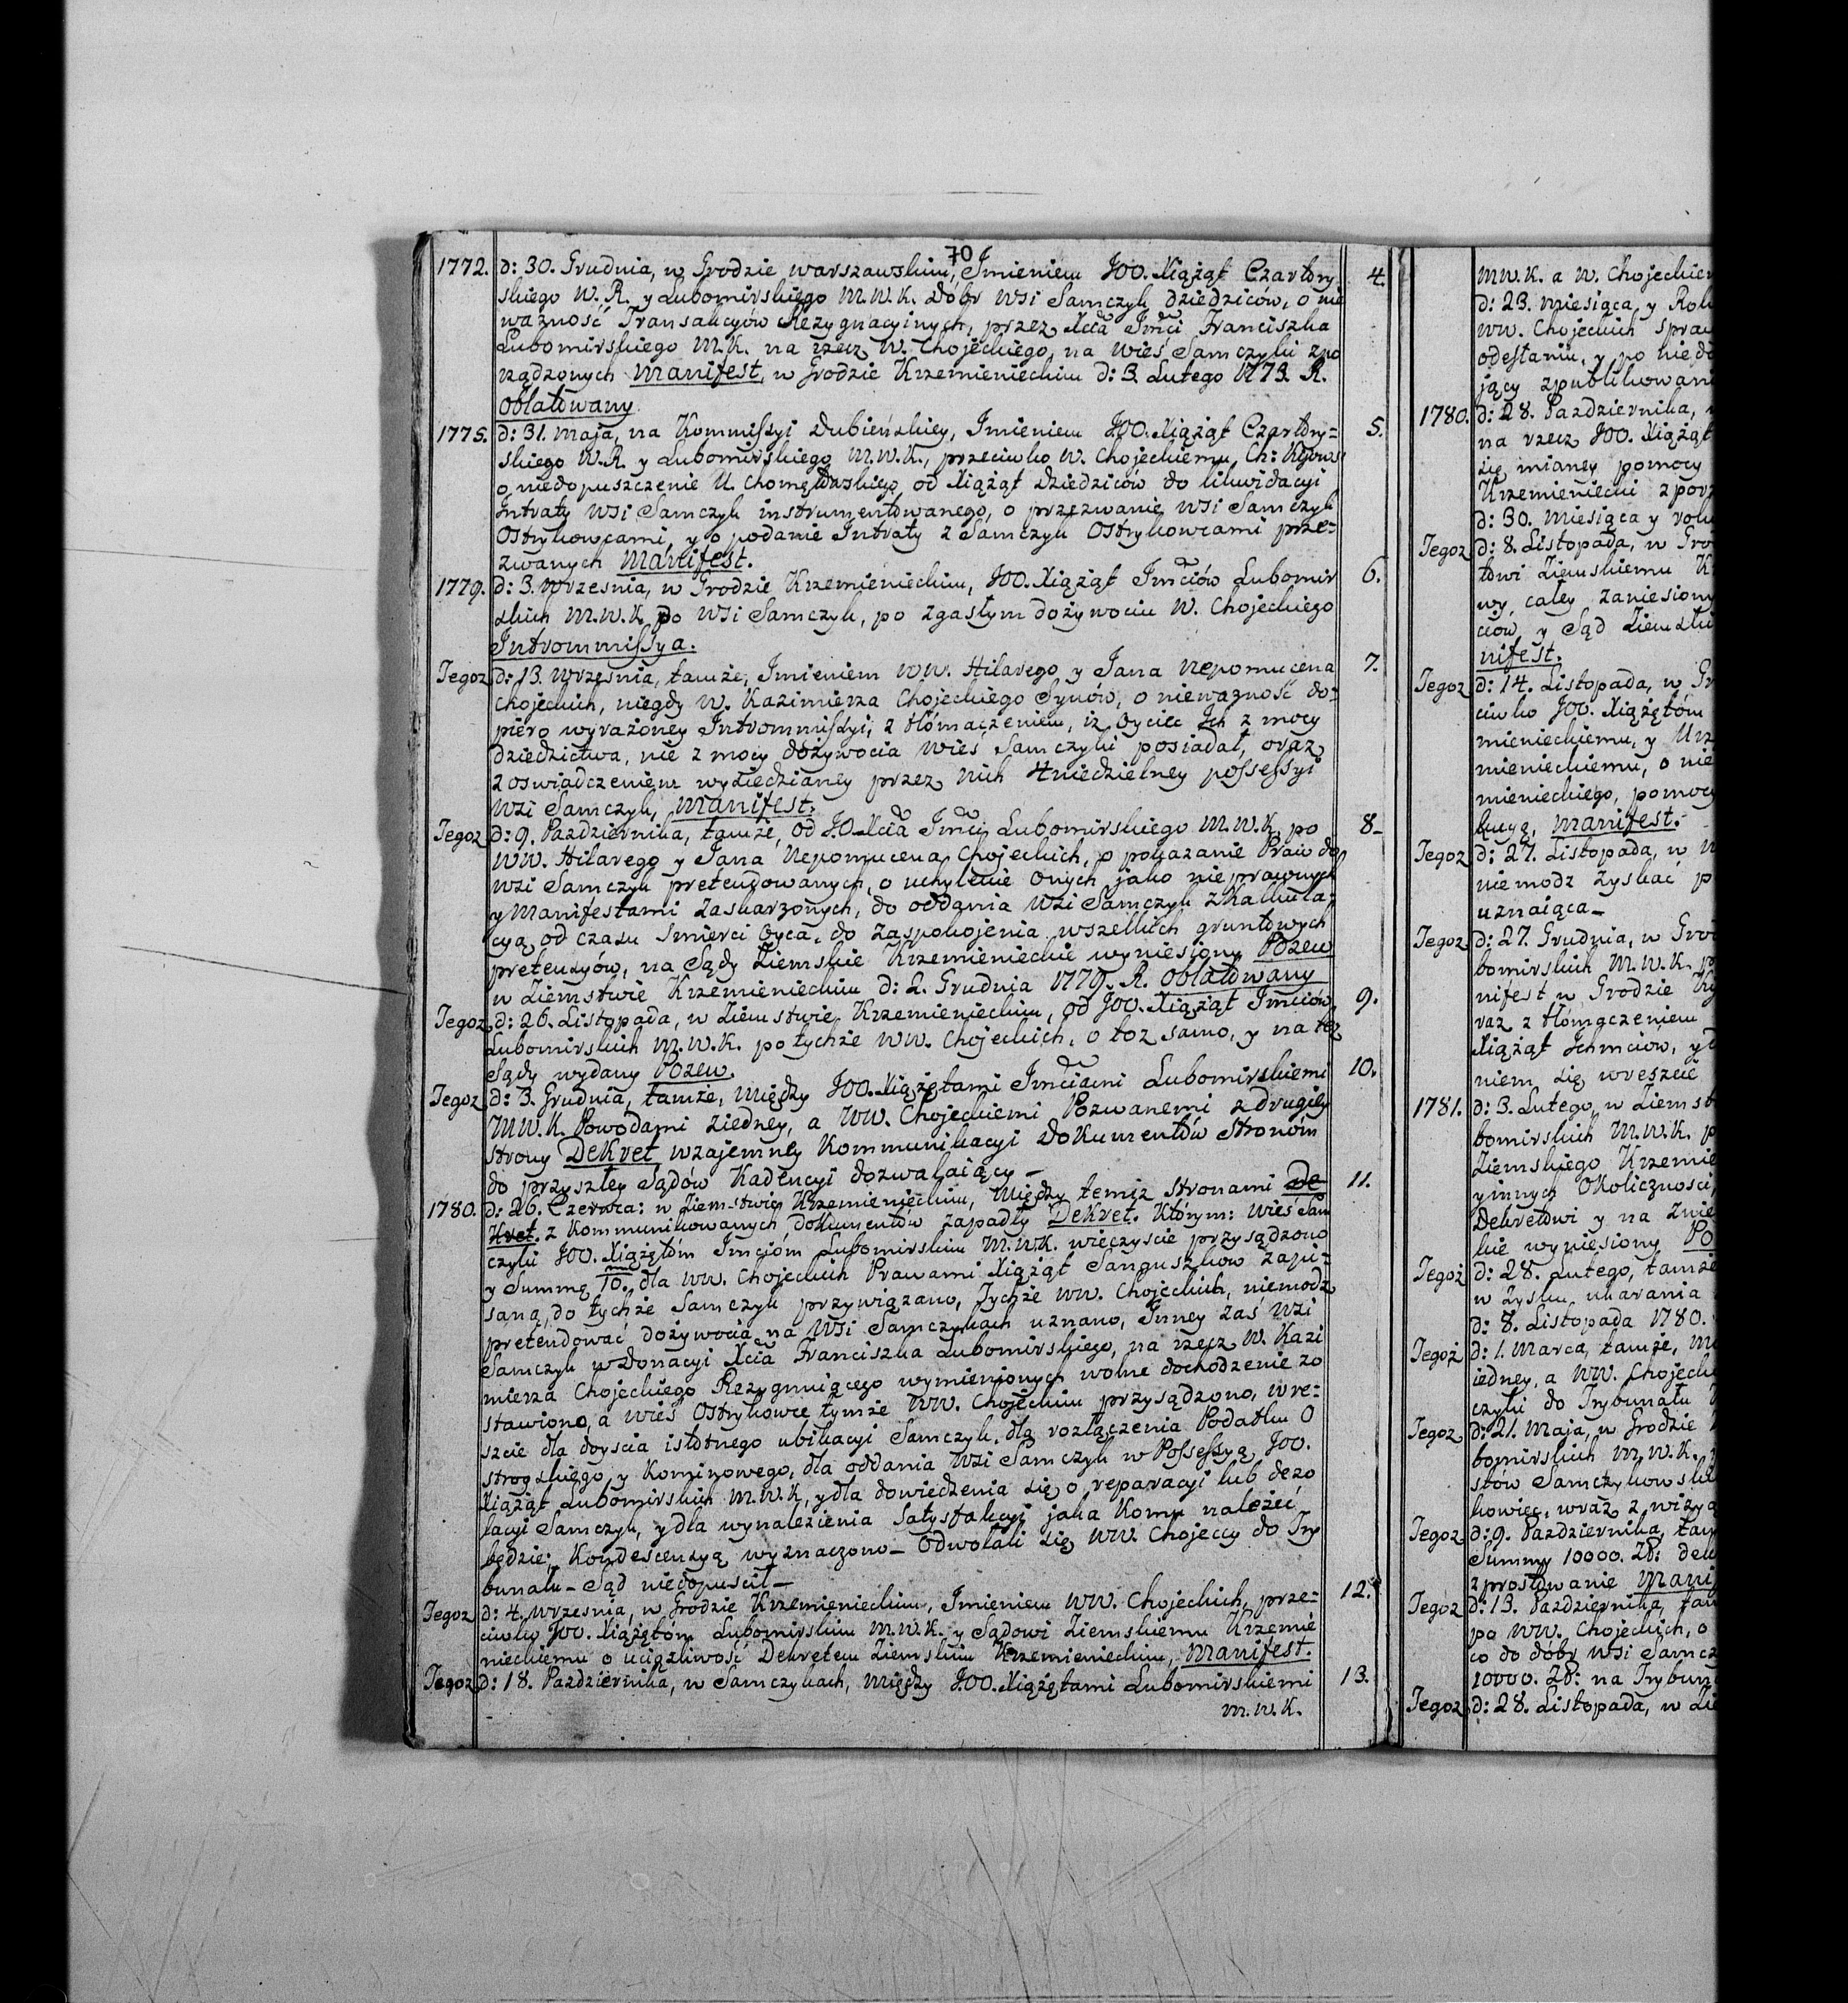 70
1772. d: 30. Grudnia, w Grodzie warszawskim, Imieniem JOO. Xiążąt Czartory 4.
skiego W. R. y Lubomirskiego M.W.K. Dóbr wsi Samczyk dziedziców, o nie
ważność Transakcyów Rezygnacyinych, przez Xcia Imći Franciszka
Lubomirskiego M.K. na rzecz W. Chojeckiego, na wieś Samczyki zpo
rządzonych Manifest, w Grodzie Krzemienieckim d: 3. Lutego 1773. R.
Oblatowany
1775. d: 31. Maja, na Kommissyi Dubieńskiey, Imieniem JOO. Xiążąt Czartory= 5.
skiego W.R. y Lubomirskiego M.W.K., przeciwko W. Chojeckiemu, Ch: Kijows
o niedopuszczenie U. Chomętowskiego od Xiążąt Dziedziców do likwidacyi
Intraty wsi Samczyk instrumentowanego, o przezwanie wsi Samczyk
Ostrykowcami, y o podanie Intraty z Samczyk Ostrykowcami prze=
zwanych Manifest.
1779. d: 3. Wrzesnia, w Grodzie Krzemienieckim, JOO. Xiążąt Imciów Lubomir 6.
skich M.W.K. do wsi Samczyk, po zgasłym dożywociu W. Chojeckiego
Intrommissya.
Tegoz d: 13. Wrzesnia, tamże, Imieniem WW. Hilarego y Jana Nepomucena 7.
Chojeckich, niegdy W. Kazimierza Chojeckiego Synów, o nieważność do=
piero wyrażoney Intrommissyi, z tłómaczeniem, iż Oyciec Ich z mocy
dziedzictwa, nie z mocy dożywocia wieś Samczyki posiadał, oraz
z oswiadczeniem wysiedzianey przez nich 4niedzielney possessyi
wsi Samczyk, Manifest.
Tegoz d: 9. Pazdziernika, tamże, od J.O. Xcia Imći Lubomirskiego M.W.K. po 8_
WW. Hilarego y Jana Nepomucena Chojeckich, o pokazanie Praw do
wsi Samczyk pretendowanych, o uchylenie onych jako nie prawnych
y Manifestami zaskarzonych, do oddania wsi Samczyk z Kalkula=
cyą od czasu smierci Oyca, do zaspokojenia wszelkich gruntowych
pretensyów, na Sądy Ziemskie Krzemienieckie wyniesiony Pozew
w Ziemstwie Krzemienieckim d: 2. Grudnia 1779. R. Oblatowany
Tegoz d: 26. Listopada, w Ziemstwie Krzemienieckim, od JOO. Xiążąt Imciów 9.
Lubomirskich M.W.K. po tychże WW. Chojeckich, o toz samo, y na też
Sądy wydany Pozew.
Tegoz d: 3. Grudnia, tamże, między JOO. Xiążętami Imciami Lubomirskiemi 10.
M.W.K. Powodami ziedney, a WW. Chojeckiemi Pozwanemi z drugiey
strony Dekret, wzajemney Kommunikacyi Dokumentów Stronóm
do przyszłey Sądów Kadencyi dozwalaiący_
1780. d: 26. Czerwca: w Ziemstwie Krzemienieckim, między temiz stronami De 11.
Kret. z Kommunikowanych dokumentów zapadły Dekret. Którym: wieś Sam
czyki JOO. Xiążętóm Imcióm Lubomirskim M.W.K. wieczyscie przysądzono
y Summę 10. m dla WW. Chojeckich Prawami Xiążąt Sanguszków zapi=
saną, do tychże Samczyk przywiązano, Tychże WW. Chojeckich, niemodz
pretendować dożywocia na wsi Samczykach uznano, Inney zas wsi
Samczyk w Donacyi Xcia Franciszka Lubomirskiego, na rzecz W. Kazi
mierza Chojeckiego Rezygnuiącego wymienionych wolne dochodzenie zo
stawiono, a wieś Ostrykowce tymże WW. Chojeckim przysądzono, wre=
szcie dla doyscia istotnego ubikacyi Samczyk, dla rozłączenia Podatku O
strogskiego y Kominowego, dla oddania wsi Samczyk w Possessyą JOO.
Xiążąt Lubomirskich M.W.K, y dla dowiedzenia się o reparacyi lub dezo
lacyi Samczyk, y dla wynalezienia satysfakcyi jaka Komu należeć
będzie; Kondescensyą wyznaczono_ Odwołali się WW. Chojeccy do Try
bunału_ Sąd niedopuscił_
Tegoz d: 4. Wrzesnia, w Grodzie Krzemienieckim, Imieniem WW. Chojeckich, prze= 12.
ciwko JOO. Xiążętom Lubomirskim M.W.K. y Sądowi Ziemskiemu Krzemie
nieckiemu o uciążliwość Dekretem Ziemskim Krzemienieckim, Manifest.
Tegoz d: 18. Pazdziernika, w Samczykach, między JOO. Xiążętami Lubomirskiemi 13.
M.W.K.
MW.K. a W. Chojeckie
d: 23. Miesiąca, y Rok
WW. Chojeckich Spraw
odesłaniu, y po niedo
jący zpublikowan
1780. d: 28. Pazdziernika,
na rzecz JOO. Xiążąt
się mianey pomocy
Krzemieniecki zporz
d: 30. Miesiąca y roku
Tegoz d: 8. Listopada, w Gro
towi Ziemskiemu K
wy, całey zaniesiony
ciów, y Sąd Ziemski
nifest.
Tegoz d: 14. Listopada, w Gr
ciwko JOO. Xiążętóm
mienieckiemu, y Urz
mienieckiemu, o nie
mienieckiego, pomocy
kucyą, Manifest.
Tegoz d: 27. Listopada, w
niemodz zyskać p
uznaiąca_
Tegoz d: 27. Grudnia, w Gro
bomirskich M.W.K. p
nifest w Grodzie
raz z tłómaczeniem
Xiążąt Ichmciow, y
niem się wreszcie
1781. d: 3. Lutego, w Ziemst
bomirskich M.W.K. p
Ziemskiego Krzemie
y innych Okolicznosci,
Dekretowi y na
kie wyniesiony Po
Tegoż d: 28. Lutego, tamże
w zysku ukarania
d: 8. Listopada 1780.
Tegoż d: 1. Marca, tamże, M
iedney, a WW. Chojeck
czyki do Trybunału
Tegoz d: 21. Maja, w Grodzie
bomirskich M.W.K.
stów Samczykowsk
kowiec, wraz z wizy
Tegoz d: 9. Pazdziernika, tam
Summy 10000. Zł: dek
zprostowanie Mani
Tegoz d: 13. Pazdziernika, tam
po WW. Chojeckich, o
co do dóbr wsi Samcz
10000. Zł: na Trybun
Tegoz d: 28. Listopada, w Zie